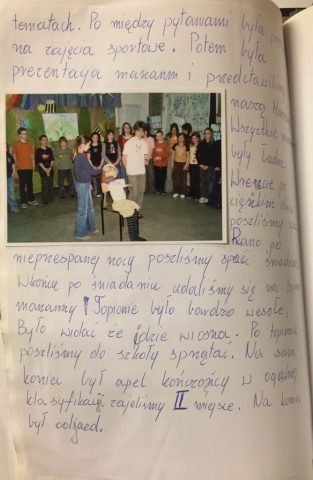 tematach. Po między pytaniami była
na zajęcia sportowe. Potem była
prezentacja marzann i
naszą
Wszystkie
były ładne.
Wreszcie po
ciężkim
poszliśmy
Rano po
nieprzespanej nocy poszliśmy zjeść
Wkońcu po śniadaniu udaliśmy się na
marzanny! Topienie było bardzo wesołe,
Było widać że idzie wiosna. Po topieniu
poszliśmy do szkoły sprzątać. Na sam
koniec był apel kończący w ogólnej
klasyfikacji zajeliśmy II miejsce. Na koniec
był odjazd.